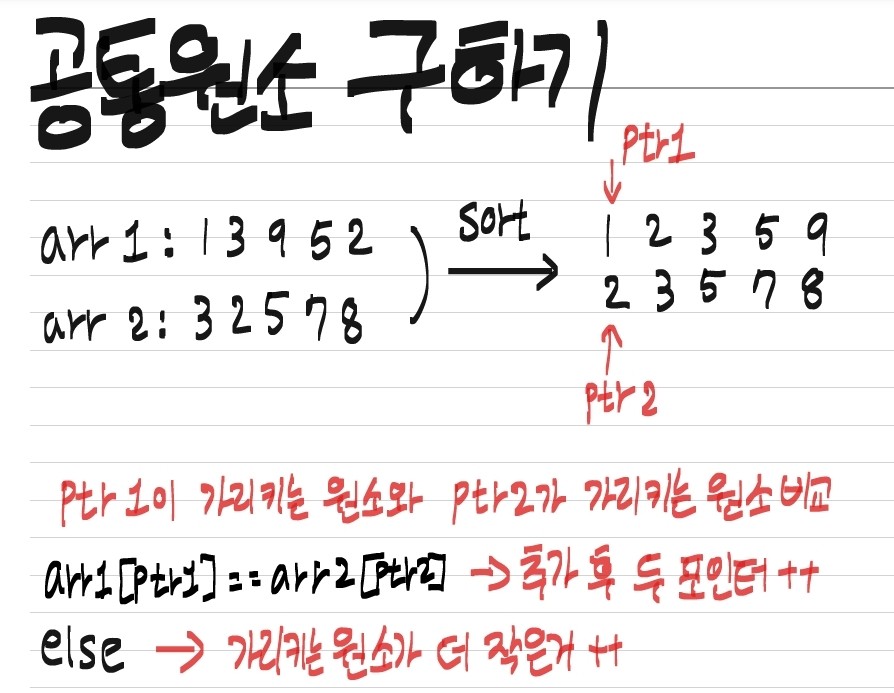 공통원소 구하기
ptr1
arr 1 : 1 3 9 5 2
sort
1 2 3 5 9
arr 2 : 3 2 5 7 8
2 3 5 7 8
ptr 2
ptr 1이 가리키는 원소와 ptr2가 가리키는 원소 비교
arr1[ptr1] == arr2[ptr2] → 추가 후 두 포인터 ++
else → 가리키는 원소가 더 작은거 ++